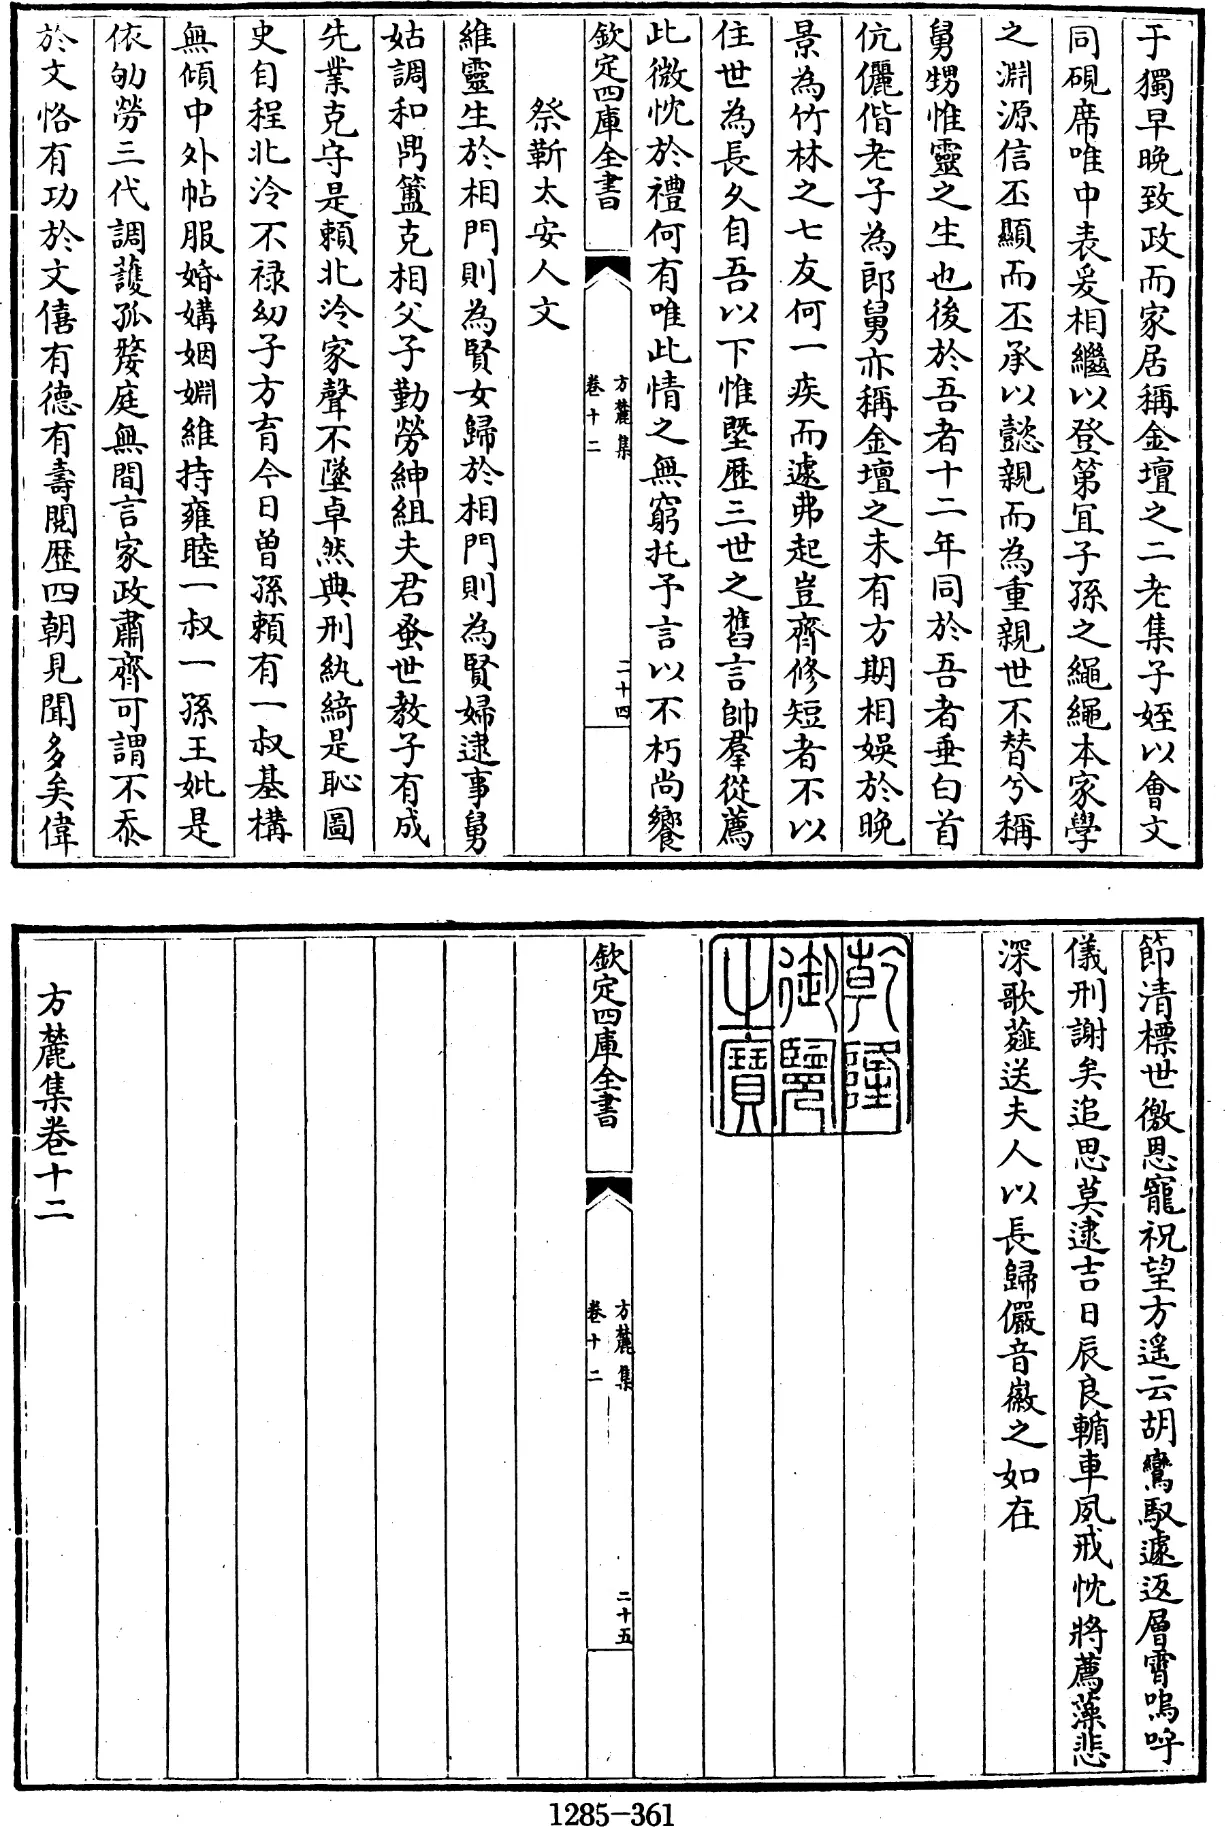 于獨早晚致政而家居稱金壇之二老集子姪以會文
同硯席唯中表爰相繼以登第宜子孫之繩繩本家學
之淵源信丕顯而丕承以懿親而為重親世不替兮稱
舅甥惟靈之生也後於吾者十二年同於吾者垂白首
伉儷偕老子為郎舅亦稱金壇之未有方期相娛於晚
景為竹林之七友何一疾而遽弗起豈齊修短者不以
住世為長久自吾以下惟墍歷三世之舊言帥羣從薦
此微忱於禮何有唯此情之無窮托予言以不朽尚饗
欽定四庫全書
方麓集
卷十二
二十四
祭靳太安人文
維靈生於相門則為賢女歸於相門則為賢婦逮事舅
姑調和鼎簠克相父子勤勞紳組夫君蚤世教子有成
先業克守是賴北泠家聲不墜卓然典刑紈綺是恥圖
史自程北泠不禄幼子方育今日曽孫賴有一叔基構
無傾中外帖服婚媾姻婣維持雍睦一叔一孫王妣是
依劬勞三代調護孤嫠庭無間言家政肅齊可謂不忝
於文恪有功於文僖有德有壽閱歷四朝見聞多矣偉
節清標世徼恩寵祝望方遥云胡鸞馭遽返層霄嗚呼
儀刑謝矣追思莫逮吉日辰良輴車夙戒忱將薦藻悲
深歌薤送夫人以長歸儼音徽之如在
乾隆
御覽
之寶
欽定四庫全書
方麓集
卷十二
二十五
方麓集卷十二
1285-361